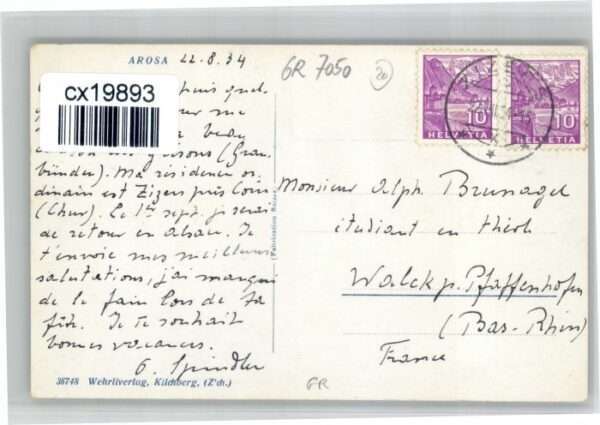 AROSA 22.8.34
GR 7050
20
cx19893
puis quel-
me
beau
Grisons (Grau-
bünden). Ma résidence or-
dinaire est Zizers près Coire
(Chur). Le 1er sept. je serai
de retour en Alsace. Je
t'envoie mes meilleures
salutations, j'ai manqué
de le faire lors de ta
fête. Je te souhait
bonnes vacances.
G. Spindler
36748 Wehrliverlag, Kilchberg, (Z'ch.)
10
HELVETIA
10
HELVETIA
Monsieur Alph. Brunagel
étudiant en théol.
Walck p. Pfaffenhofen
(Bas-Rhin)
France
GR